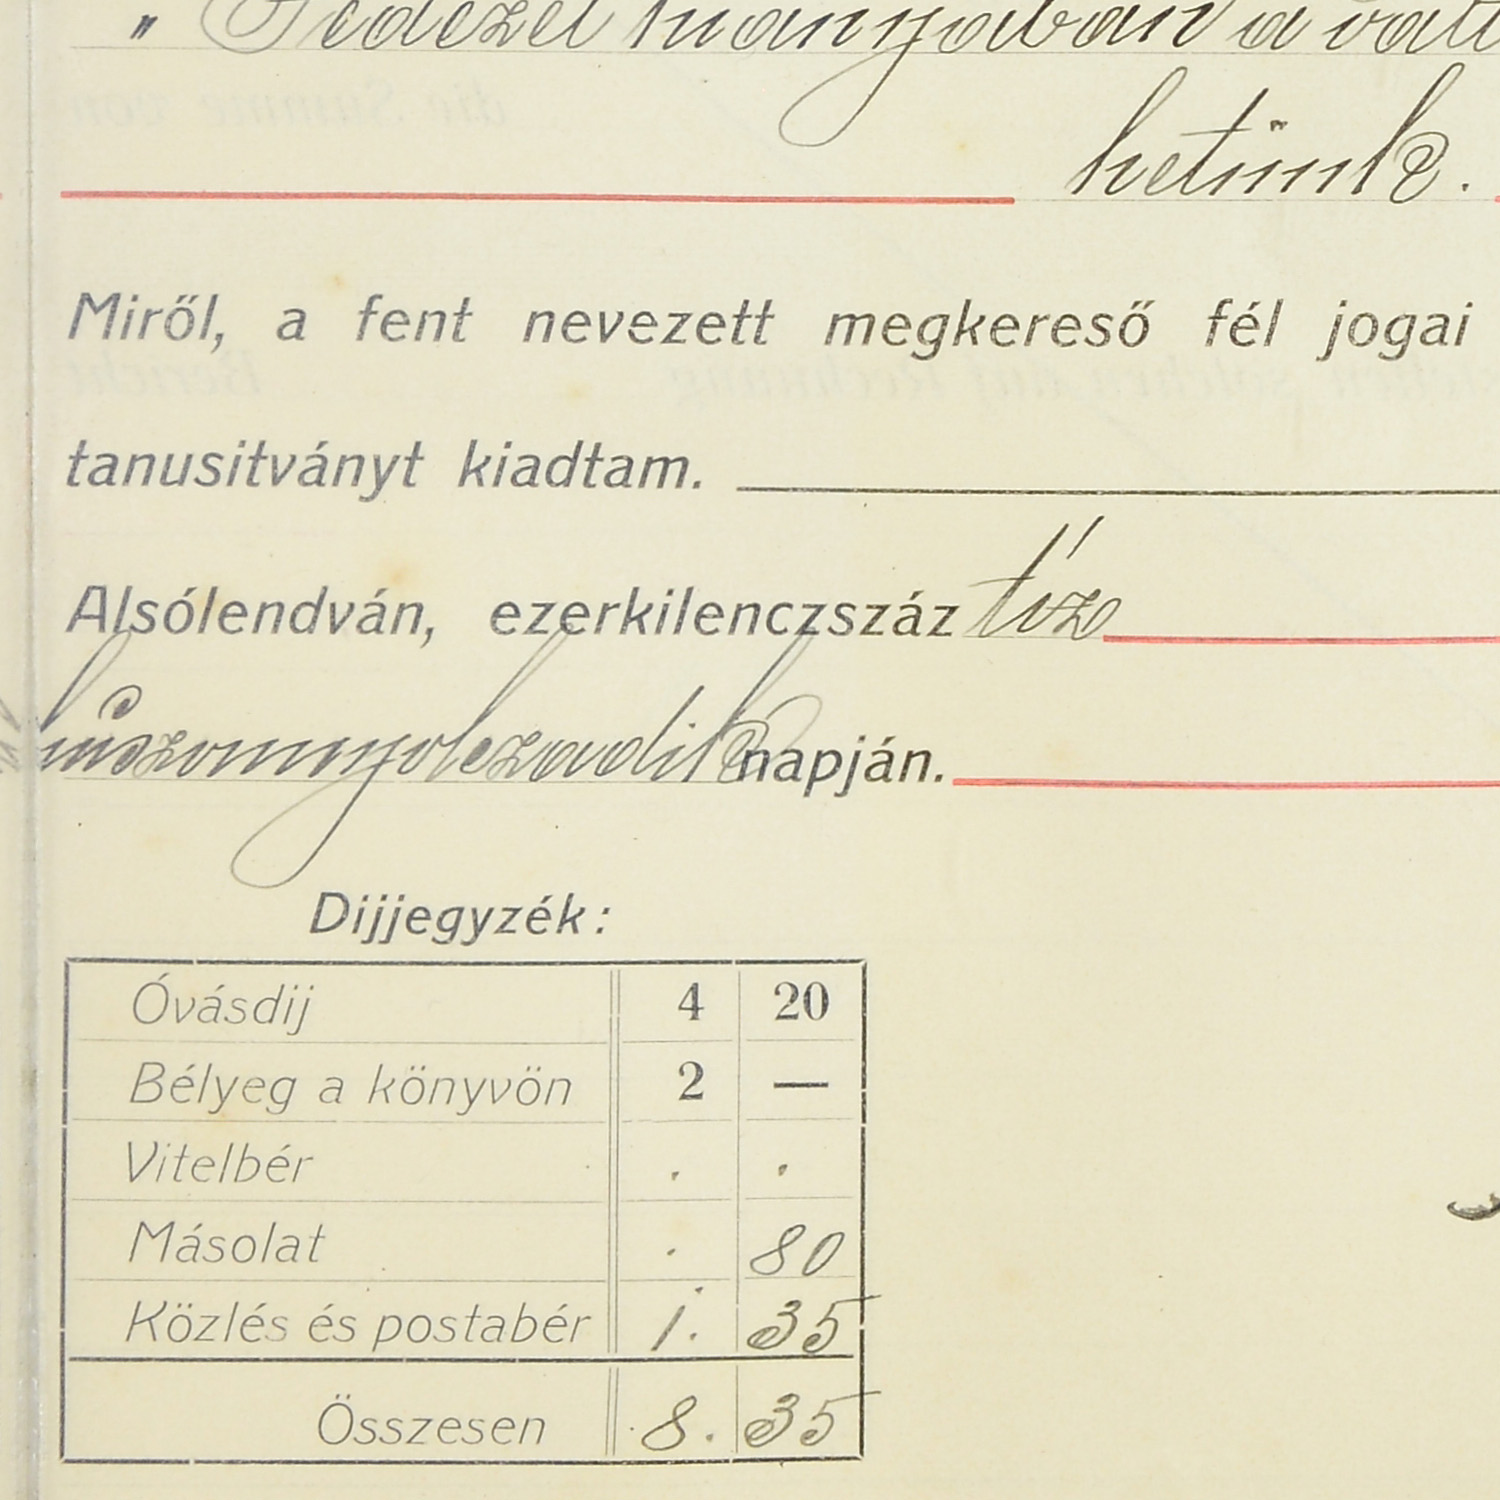 " Fedezet hiányában a vált
hetünk.
Miről, a fent nevezett megkereső fél jogai
tanusitványt kiadtam.
Alsólendván, ezerkilenczszáz tíz
húszonnyolczadik napján.
Dijjegyzék:
Óvásdij 4 20
Bélyeg a könyvön 2 —
Vitelbér . .
Másolat . 80
Közlés és postabér 1. 35
Összesen 8. 35